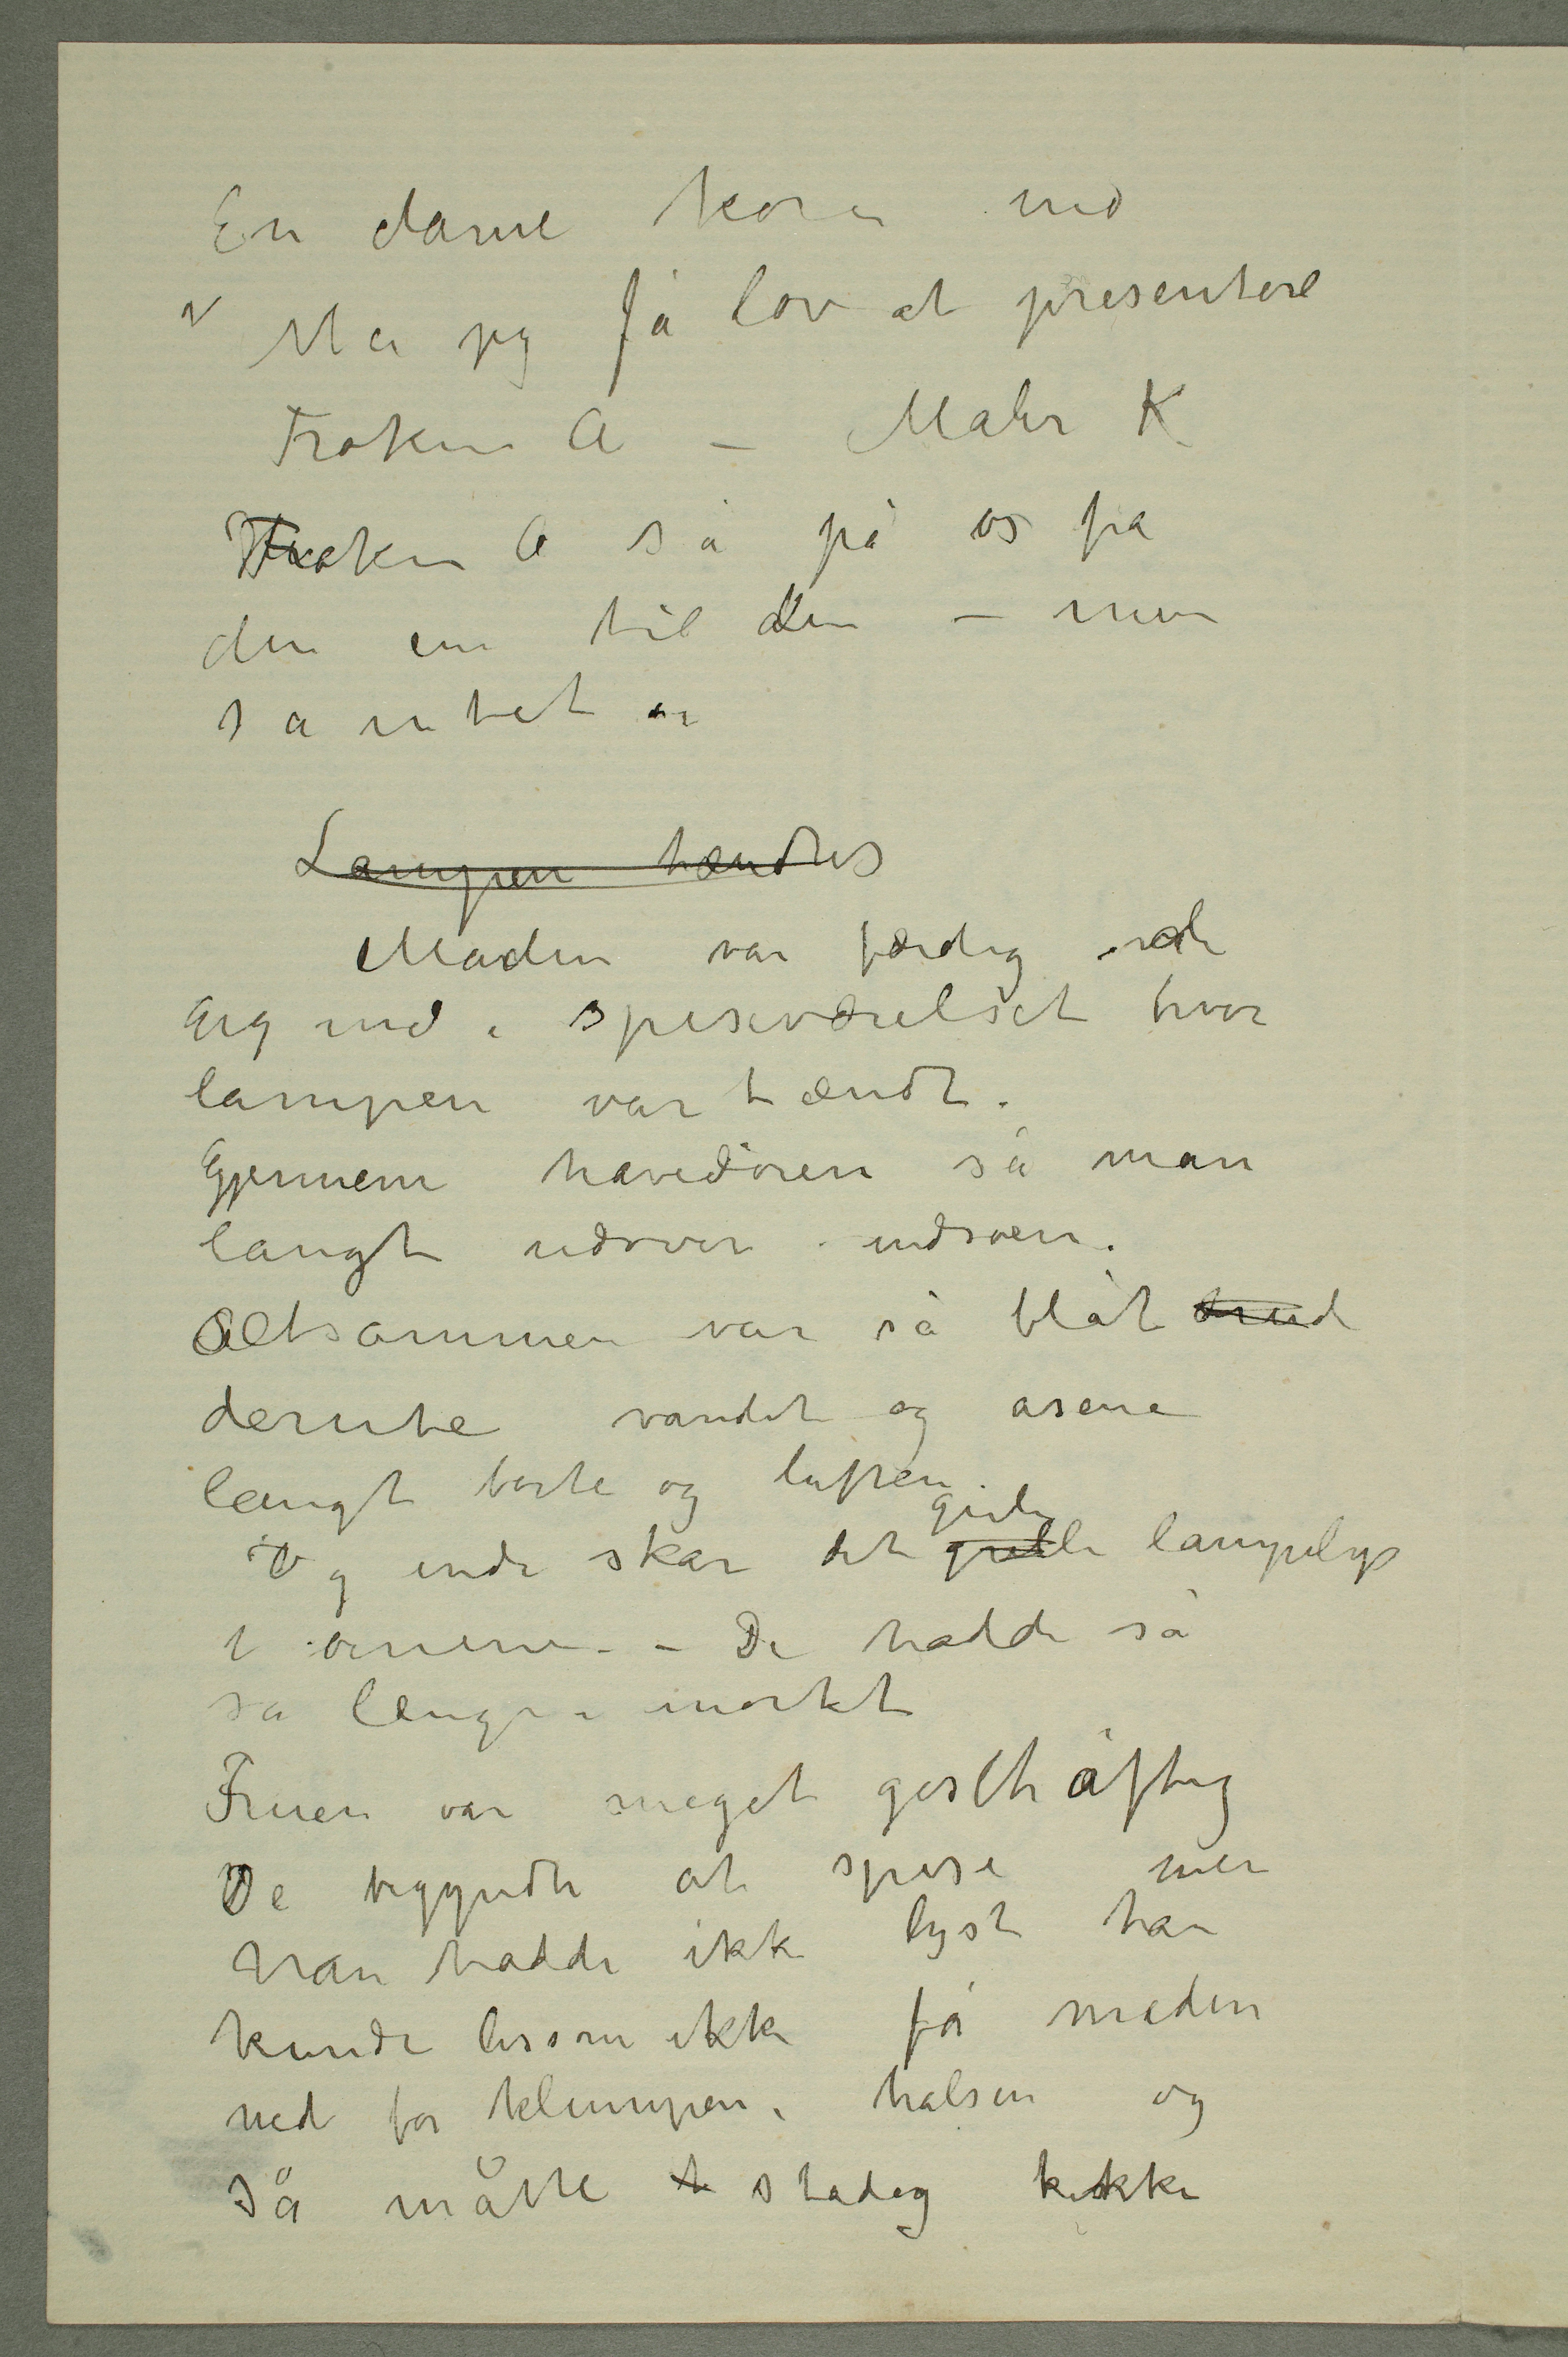 En dame kom ind
Må jeg få lov at presentere
Frøken A – Maler K
Frøken A så på os fra
den ene til den – men
sa intet
Lampen tændtes
Maden var færdig
gik ind i spiseværelset hvor
lampen var tændt.
Gjennem havedøren så man
langt udover indsøen.
Altsammen var så blåt
derute vandet og åsene
langt borte og luften
gule
Og inde skar det grelle lampelys
i øinene. – De hadde så
så længe i mørkt
Fruen var meget geschäftig
De begyndte at spise men
Han hadde ikke lyst han
kunde lissom ikke få maden
ned for klumpen i halsen og
så måtte stadig kikke